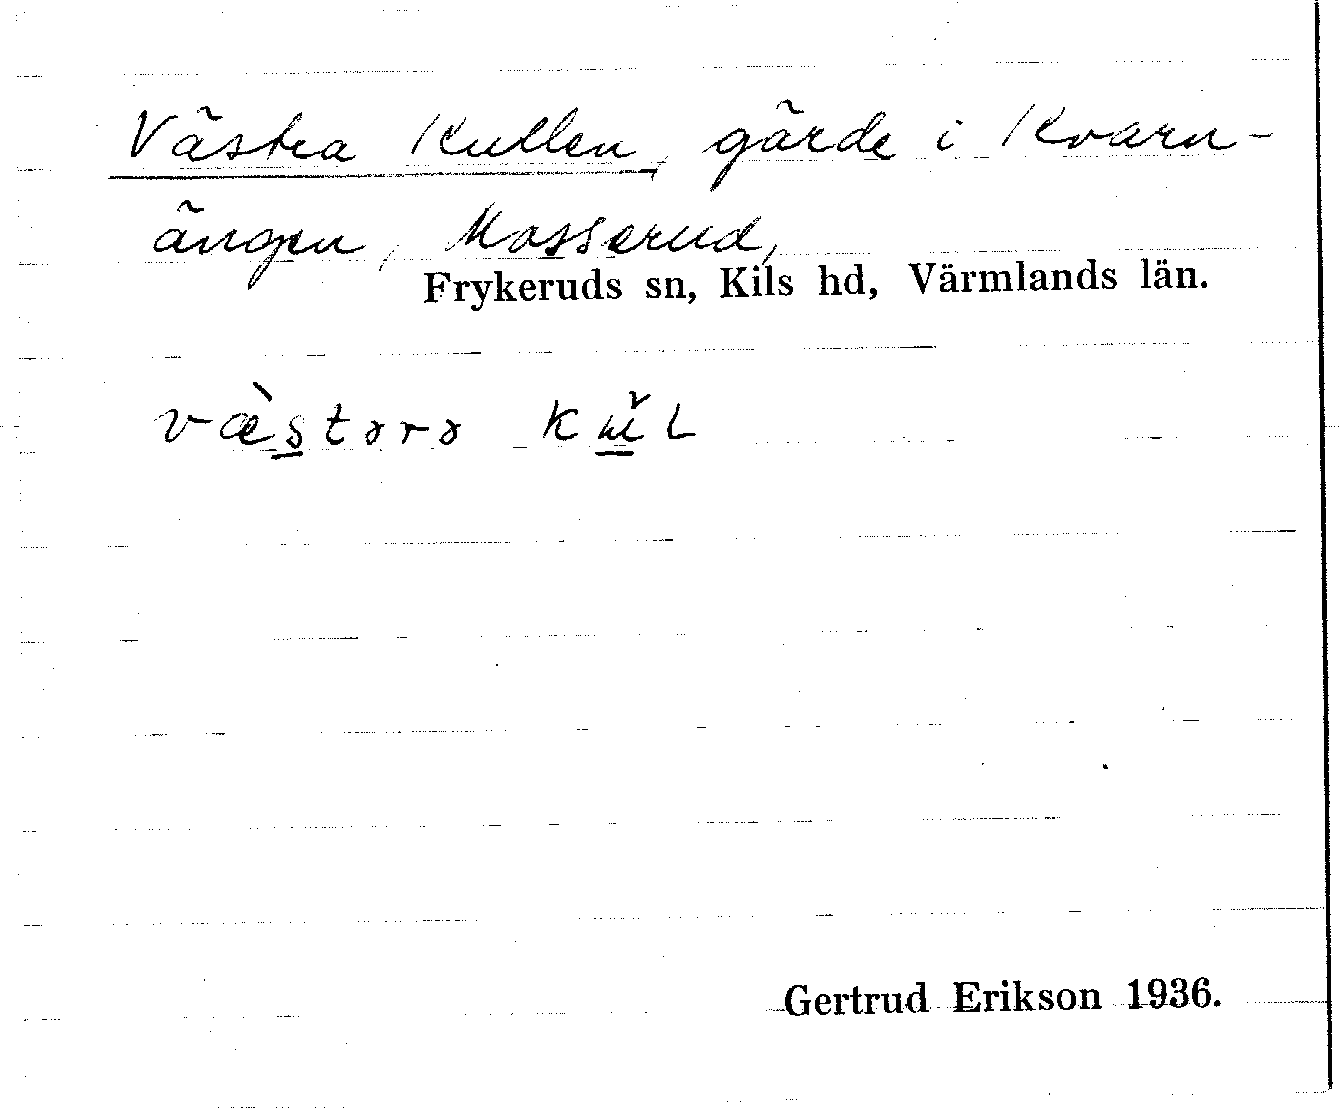 Västra Kullen, gärde i Kvarn-
ängen, Mosserud,
Frykeruds sn, Kils hd, Värmlands län.
væ̀s̲tərə
Gertrud Erikson 1936.